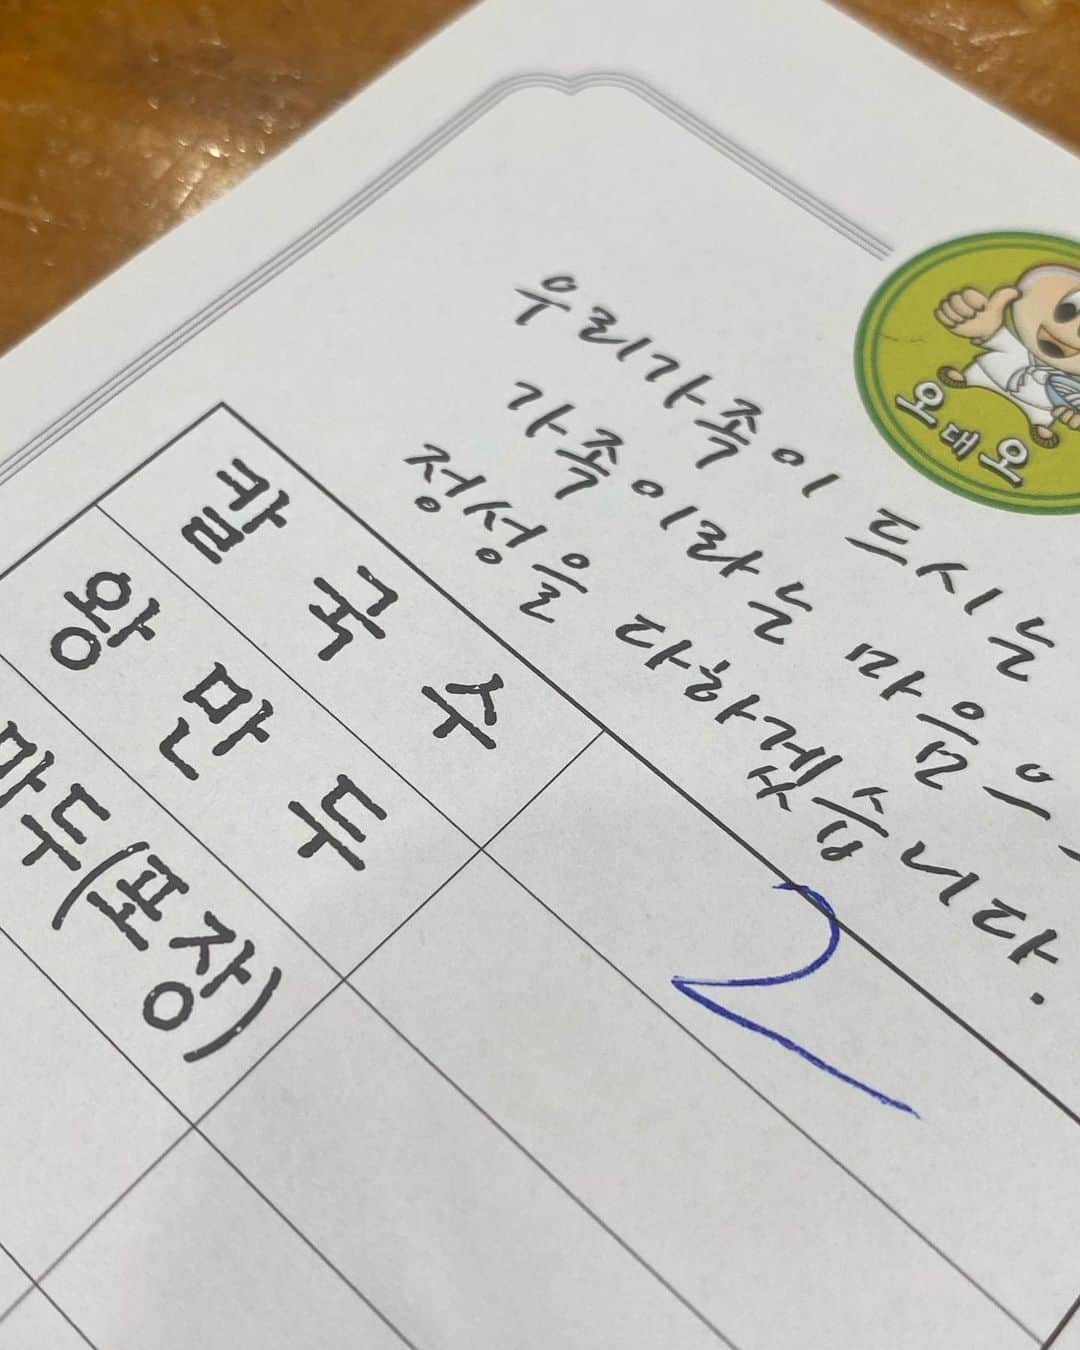 우리가족이 드시는
가족이라는 마음으
정성을 다하겠습니다.
오대오
칼국수 2
왕만두
만두(포장)